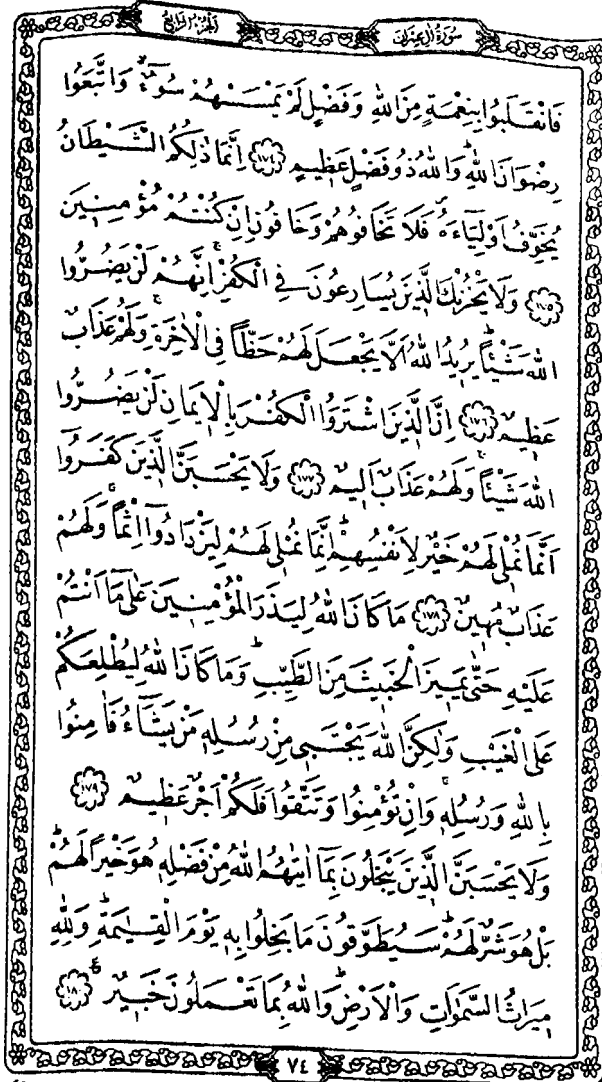 سُورَةُ اٰلِ عِمْرٰنَ
اَلْجُزْءُ الرَّابِعُ
فَانْقَلَبُوا بِنِعْمَةٍ مِنَ اللّٰهِ وَفَضْلٍ لَمْ يَمْسَسْهُمْ سُوءٌۙ وَاتَّبَعُوا
رِضْوَانَ اللّٰهِۜ وَاللّٰهُ ذُو فَضْلٍ عَظِيمٍ ﴿١٧٤﴾ اِنَّمَا ذٰلِكُمُ الشَّيْطَانُ
يُخَوِّفُ اَوْلِيَٓاءَهُۖ فَلَا تَخَافُوهُمْ وَخَافُونِ اِنْ كُنْتُمْ مُؤْمِنِينَ
﴿١٧٥﴾ وَلَا يَحْزُنْكَ الَّذِينَ يُسَارِعُونَ فِي الْكُفْرِۚ اِنَّهُمْ لَنْ يَضُرُّوا
اللّٰهَ شَيْـًٔاۜ يُرِيدُ اللّٰهُ اَلَّا يَجْعَلَ لَهُمْ حَظًّا فِي الْاٰخِرَةِۚ وَلَهُمْ عَذَابٌ
عَظِيمٌ ﴿١٧٦﴾ اِنَّ الَّذِينَ اشْتَرَوُا الْكُفْرَ بِالْاِيمَانِ لَنْ يَضُرُّوا
اللّٰهَ شَيْـًٔاۚ وَلَهُمْ عَذَابٌ اَلِيمٌ ﴿١٧٧﴾ وَلَا يَحْسَبَنَّ الَّذِينَ كَفَرُٓوا
اَنَّمَا نُمْلِي لَهُمْ خَيْرٌ لِاَنْفُسِهِمْۜ اِنَّمَا نُمْلِي لَهُمْ لِيَزْدَادُٓوا اِثْمًاۚ وَلَهُمْ
عَذَابٌ مُهِينٌ ﴿١٧٨﴾ مَا كَانَ اللّٰهُ لِيَذَرَ الْمُؤْمِنِينَ عَلٰى مَٓا اَنْتُمْ
عَلَيْهِ حَتّٰى يَمِيزَ الْخَبِيثَ مِنَ الطَّيِّبِۜ وَمَا كَانَ اللّٰهُ لِيُطْلِعَكُمْ
عَلَى الْغَيْبِ وَلٰكِنَّ اللّٰهَ يَجْتَبِي مِنْ رُسُلِهِ مَنْ يَشَٓاءُ فَاٰمِنُوا
بِاللّٰهِ وَرُسُلِهِۚ وَاِنْ تُؤْمِنُوا وَتَتَّقُوا فَلَكُمْ اَجْرٌ عَظِيمٌ ﴿١٧٩﴾
وَلَا يَحْسَبَنَّ الَّذِينَ يَبْخَلُونَ بِمَٓا اٰتٰيهُمُ اللّٰهُ مِنْ فَضْلِهِ هُوَ خَيْرًا لَهُمْۜ
بَلْ هُوَ شَرٌّ لَهُمْۜ سَيُطَوَّقُونَ مَا بَخِلُوا بِهِ يَوْمَ الْقِيٰمَةِۜ وَلِلّٰهِ
مِيرَاثُ السَّمٰوَاتِ وَالْاَرْضِۜ وَاللّٰهُ بِمَا تَعْمَلُونَ خَبِيرٌ ﴿١٨٠﴾
٧٤